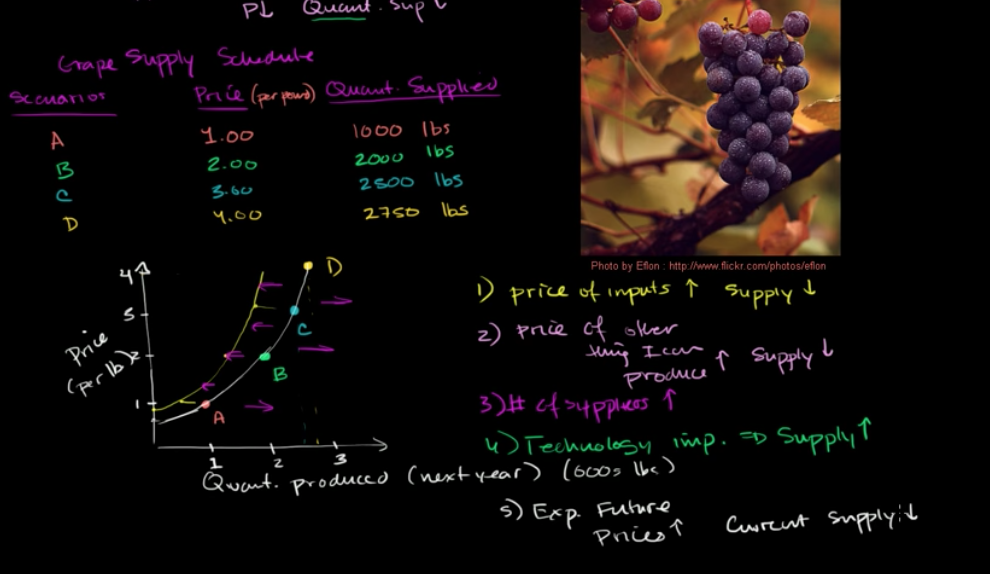 P↓ Quant. Sup ↓
Grape Supply Schedule
Scenarios Price (per pound) Quant. Supplied
A 1.00 1000 lbs
B 2.00 2000 lbs
C 3.00 2500 lbs
D 4.00 2750 lbs
Photo by Eflon : http://www.flickr.com/photos/eflon
4
3
2
1
Price
(per lb)
A
B
C
D
1 2 3
Quant. produced (next year) (000s lbs)
1) price of inputs ↑ Supply ↓
2) price of other
thing I can
produce ↑ Supply ↓
3) # of suppliers ↑
4) Technology imp. => Supply ↑
5) Exp. Future
Prices ↑ Current Supply ↓